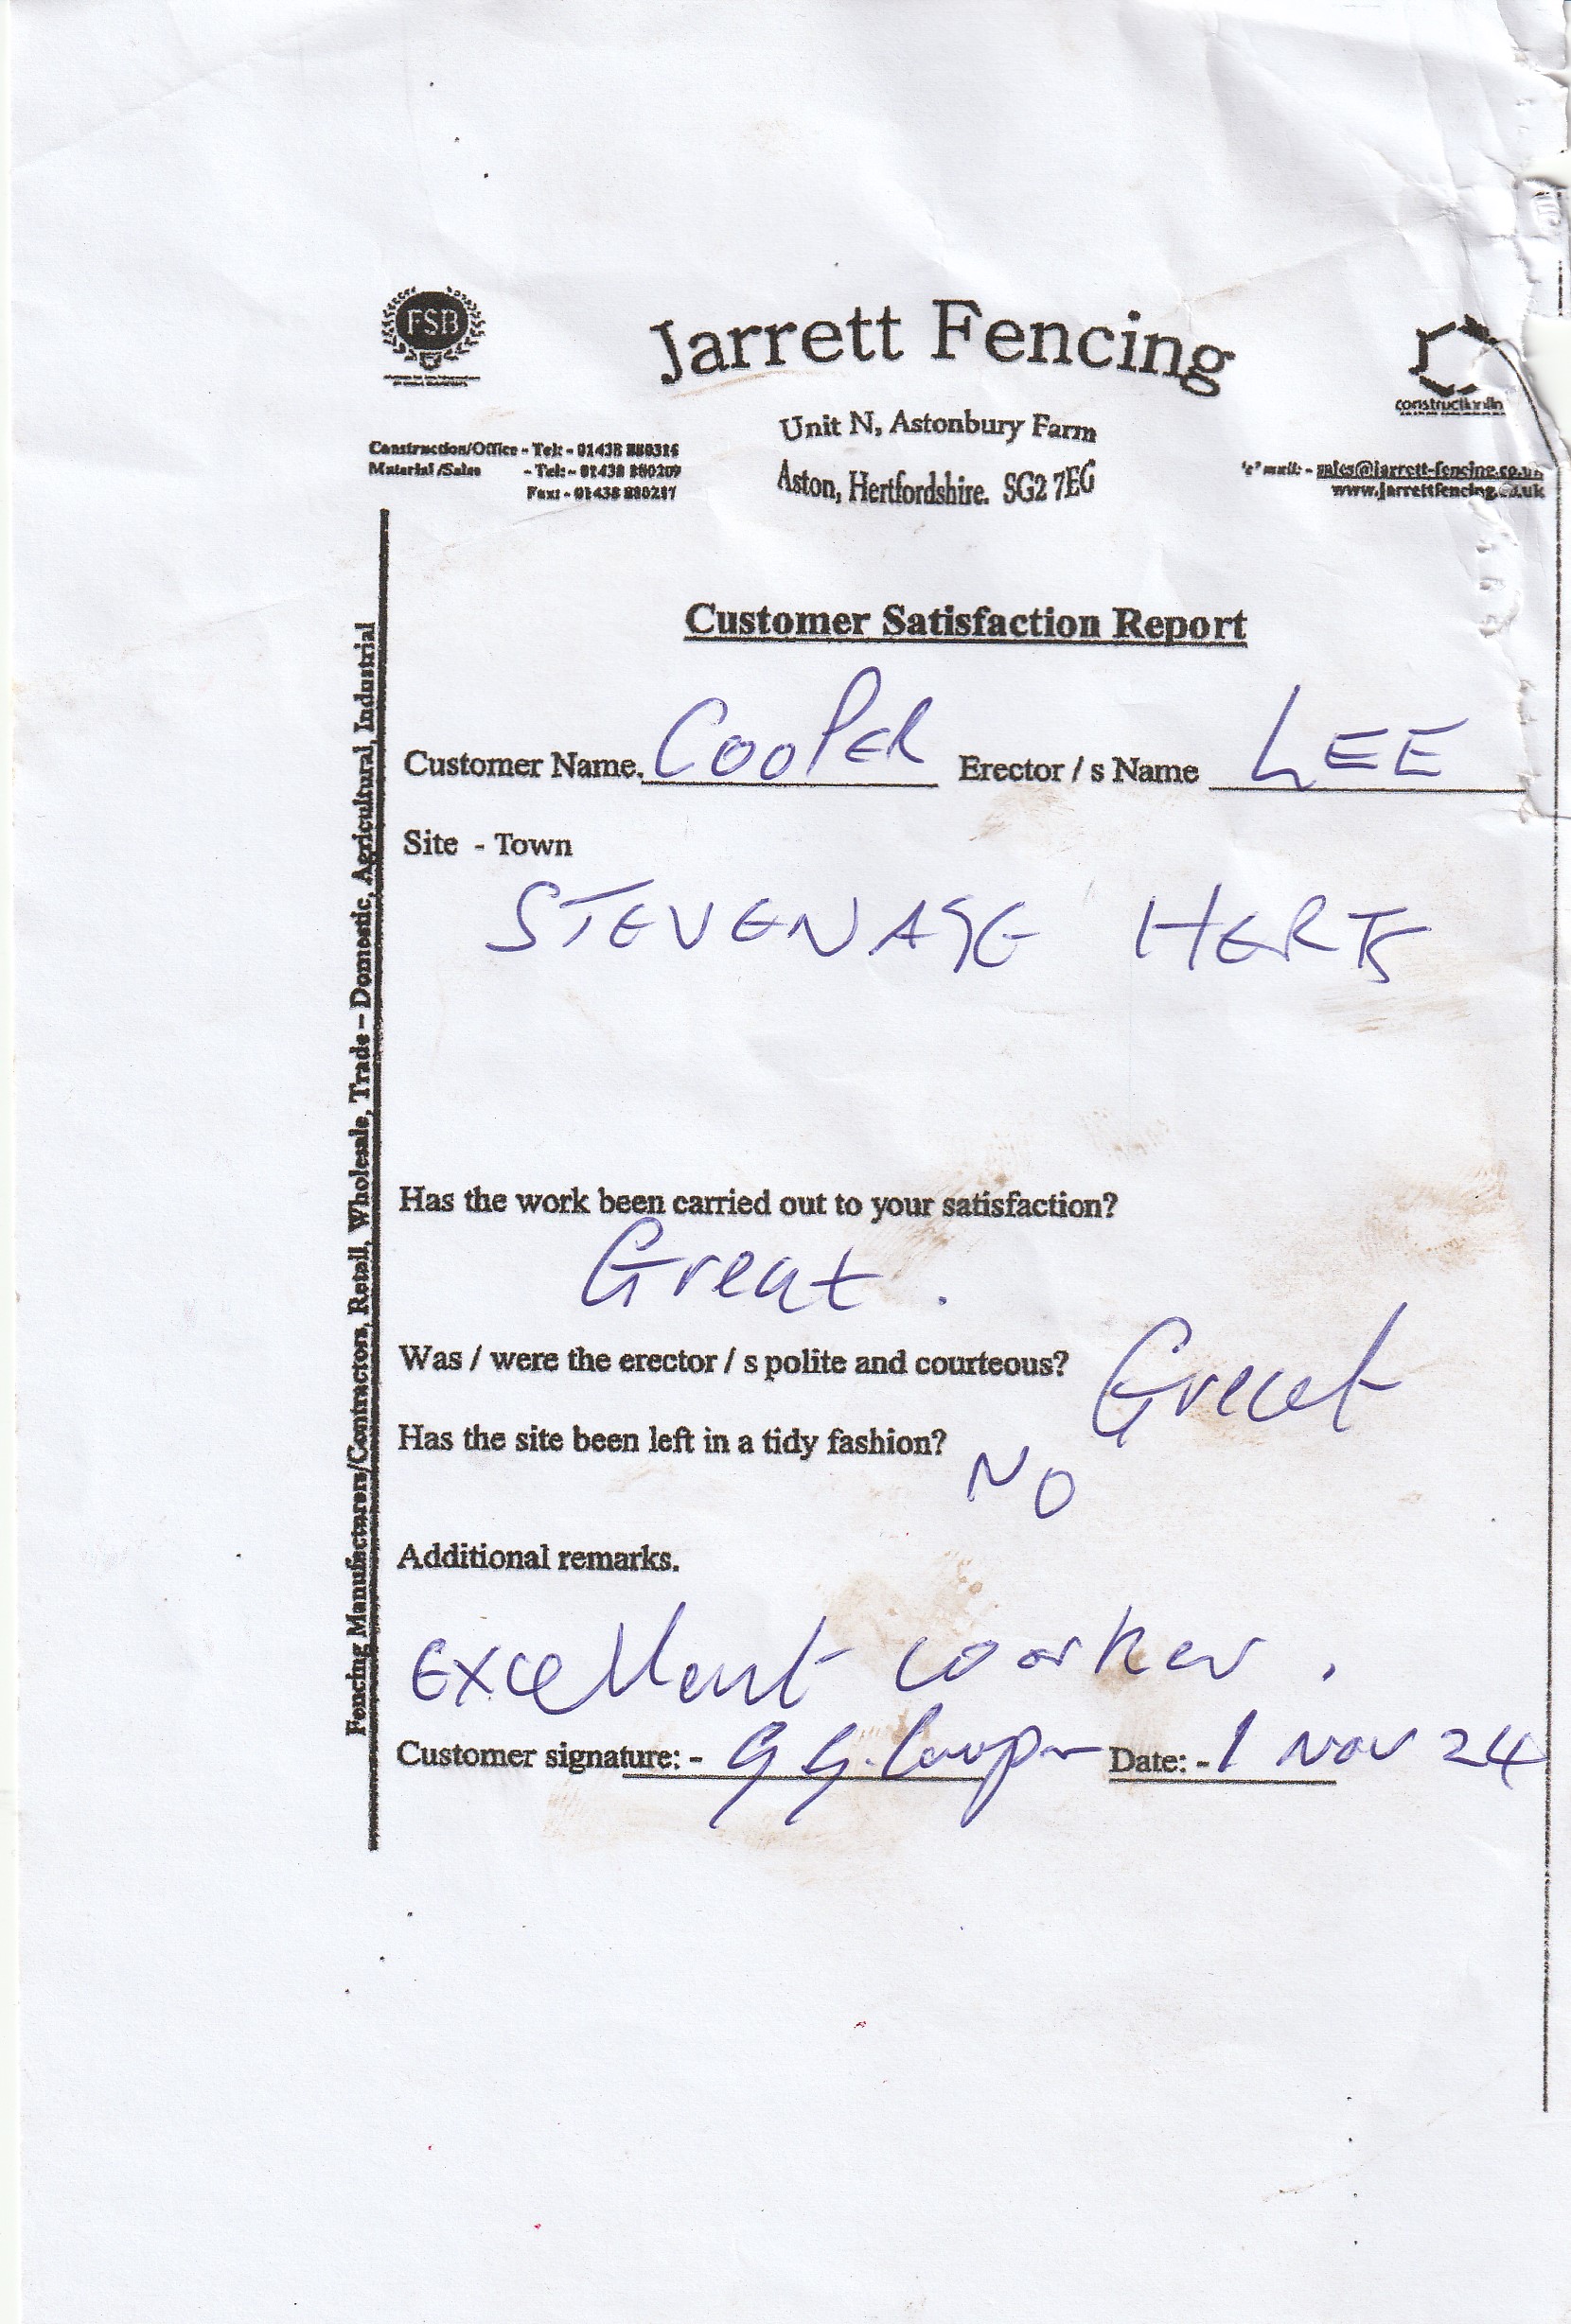 FSB
Jarrett Fencing
constructionline
Unit N, Astonbury Farm
Aston, Hertfordshire. SG2 7EG
Construction/Office - Tel: - 01438 880316
Material/Sales - Tel: - 01438 880209
Fax: - 01438 880217
'e' mail: - sales@jarrett-fencing.co.uk
www.jarrettfencing.co.uk
Fencing Manufacturers/Contractors, Retail, Wholesale, Trade – Domestic, Agricultural, Industrial
Customer Satisfaction Report
Customer Name. COOPER Erector / s Name LEE
Site - Town
STEVENAGE HERTS
Has the work been carried out to your satisfaction?
Great.
Was / were the erector / s polite and courteous? Great
Has the site been left in a tidy fashion? NO
Additional remarks.
Excellent worker.
Customer signature: - G G. Cooper Date: - 1 Nov 24